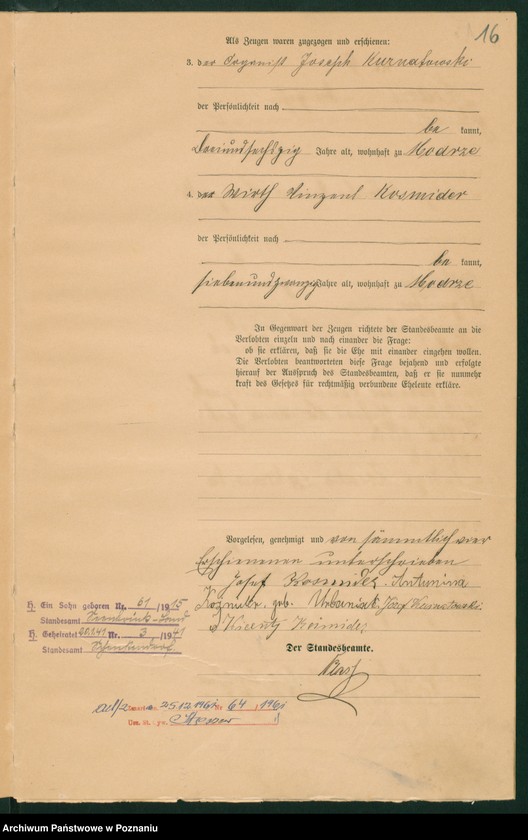 16
Als Zeugen waren zugezogen und erschienen:
3. der Organist Joseph Kurnatowski
der Persönlichkeit nach
be kannt,
dreiundsechzig Jahre alt, wohnhaft zu Modrze
4. der Wirth Vinzent Kosmider
der Persönlichkeit nach
be kannt,
siebenundzwanzig Jahre alt, wohnhaft zu Modrze
In Gegenwart der Zeugen richtete der Standesbeamte an die
Verlobten einzeln und nach einander die Frage:
ob sie erklären, daß sie die Ehe mit einander eingehen wollen.
Die Verlobten beantworteten diese Frage bejahend und erfolgte
hierauf der Ausspruch des Standesbeamten, daß er sie nunmehr
kraft des Gesetzes für rechtmäßig verbundene Eheleute erkläre.
Vorgelesen, genehmigt und von sämmtlich vier
Erschienenen unterschrieben
Josef Kosmider Antonina
Kozmider geb. Urbaniak Józef Kurnatowski
Kosmider
Der Standesbeamte.
H. Ein Sohn geboren Nr. 61 /1915
Standesamt
H. Geheiratet Nr. 3 /194
Standesamt
25.12.1961 Nr 64 / 1961